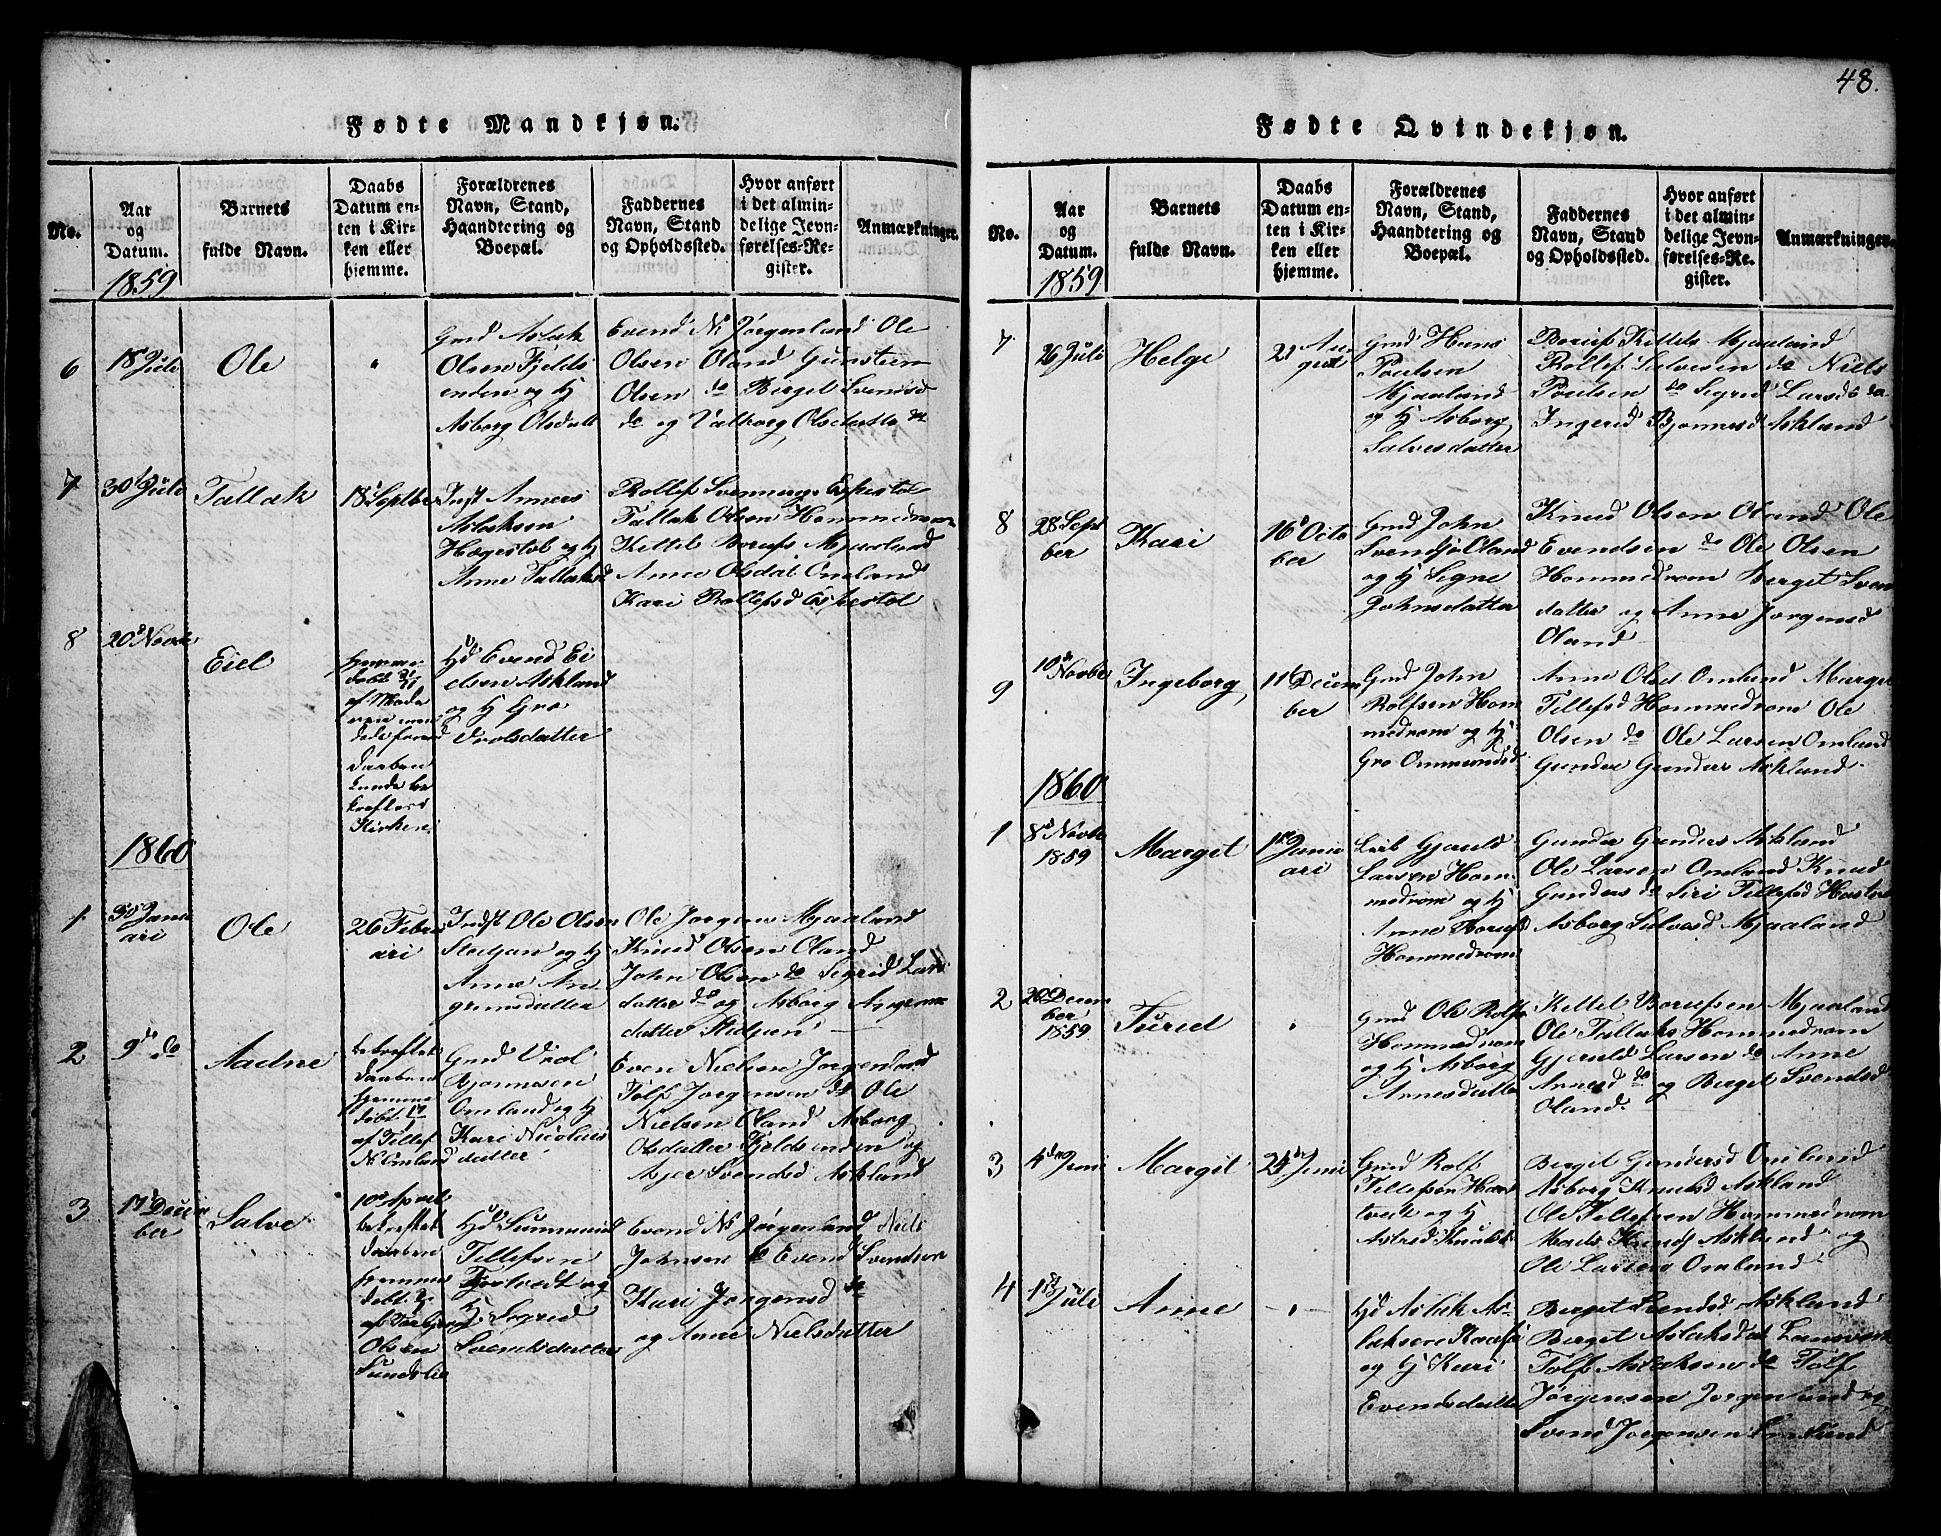 48.
Fødte Mandkjøn.
No.
Aar
og
Datum.
1859
Barnets
fulde Navn.
Daabs
Datum en-
ten i Kir-
ken eller
hjemme.
Forældrenes
Navn, Stand,
Haandtering og
Boepæl.
Faddernes
Navn, Stand
og Opholdssted.
Hvor anført
i det almin-
delige Jevn-
førelses-Re-
gister.
Anmærkninger.
6
18 Juli
Ole
"
Gmd Aslak
Olsen Fjelds
enden og H
Asborg Olsdatt
Evend Ns Jørgenland Ole
Olsen Oland Gunsten
Olsen do Berget Svensd
do og Valborg Olsdatte do
7
30 Juli
Tallak
18 Septber
Inst Anners
Aslaksen
Hægestøl og H
Anne Tallaksd
Rollef Svennungs Espestøl
Tallak Olsen Hommedrom
Kittel Borufs Mjaaland
Anne Olsdat Omland
Kari Rollefsd Espestøl
8
20 Novbr
Eiel
hjemme-
døbt
af Mode
ren
daaben
kunde be
kræftes i
Kirken
Hd Evend Ei
elsen Askland
og H Gro
Vrolsdatter
1860
1
30 Janu
ari
Ole
26 Febru
ari
Indst Ole Olsen
Stedjan og H
Anne An
grimsdatter
Ole Jørgens Mjaaland
Knud Olsen Oland
John Olsen do Segrid Lars
datter do og Asborg Asgrims
datter Stedjan
2
9 do
Aadne
bekræftet
daaben
hjemme
døbt
af Tellef
Ns Omland
Gmd Vrol
Gjonnesen
Omland og H
Kari Nicolais
datter
Even Nielsen Jørgenland
Tolf Jørgensen do Ole
Nielsen Oland Asborg
Olsdatter Fjeldsenden og
Asjer Svendsd Askland
3
17 Decem
ber
Salve
10 April
bekræftet
daaben
hjemme
døbt
af Torbjørn
Olsen
Sundsli
Hd Summund
Tellefsen
og
H. Segrid
Svendsdatter
Evend Ns Jørgenland Niels
Johnsen do Evend Svendsen
Kari Jørgensd do
og Anne Nielsdatter
Fødte Qvindekjøn.
No.
Aar
og
Datum.
1859
Barnets
fulde Navn.
Daabs
Datum en-
ten i Kir-
ken eller
hjemme.
Forældrenes
Navn, Stand,
Haandtering og
Boepæl.
Faddernes
Navn, Stand
og Opholdssted.
Hvor anført
i det almin-
delige Jevn-
førelses-Re-
gister.
Anmærkninger.
7
26 Juli
Helge
21 Au
gust
Gmd Hans
Poulsen
Mjaaland
og H Asborg
Salvesdatter
Boruf Kittels Mjaaland
Rollef Salvesen do Niels
Poulsen do Segrid Larsd do
Ingerid Bjonnesd Askland
8
28 Septb
ber
Kari
16 Octo
ber
Gmd John
Svends Oland
og H Signe
Johnsdatter
Knud Olsen Oland Ole
Evendsen do Ole Olsen
Hommedrom Berget Sven
datter og Anne Jørgensd
Oland
9
10 Novbr
Ingeborg
11 Decem
ber
Gmd John
Rolfsen Hom
medrom og H
Gro Ommundsd
Anne Olsd Omland Margit
Tellefsd Hommedrom Ole
Olsen do Ole Larsen Omland
Gunder Gunders Askland
1860
1
8 Novbr
1859
Margit
1 Janu
ari
Leib Gjeruld
Larsen Hom
medrom og H
Anne Borufsd
Hommedrom
Gunder Gunders Askland
Ole Larsen Omland Knud
Gunders do Siri Tellefsd
Asborg Salvesd Mjaaland
2
20 Decem
ber
1859
Turid
"
Gmd Ole Rolfs
Hommedrom
og H Asborg
Annesdatte
Kittel Borufsen Mjaaland
Ole Tallaks Hommedrom
Gjeruld Larsen do Anne
Annesd do og Berget Svendsd
Oland.
3
4 Juni
Margit
24 Juni
Gmd Rolf
Tellefsen Hars
tvedt og H
Astrid Knudsd
Berget Gundersd Omland
Asborg Knudsd Askland
Ole Tellefsen Hommedrom
Mads Knuds Askland og
Ole Larsen Omland
4
1 Juli
Anne
- " -
Hd Aslak As-
laksen
og H Kari
Evendsdatter
Berget Svendsd Askland
Berget Aslaksdat
Tolf Aslaksen do Tolf
Jørgensen Jørgenland og
Svend Jørgensen